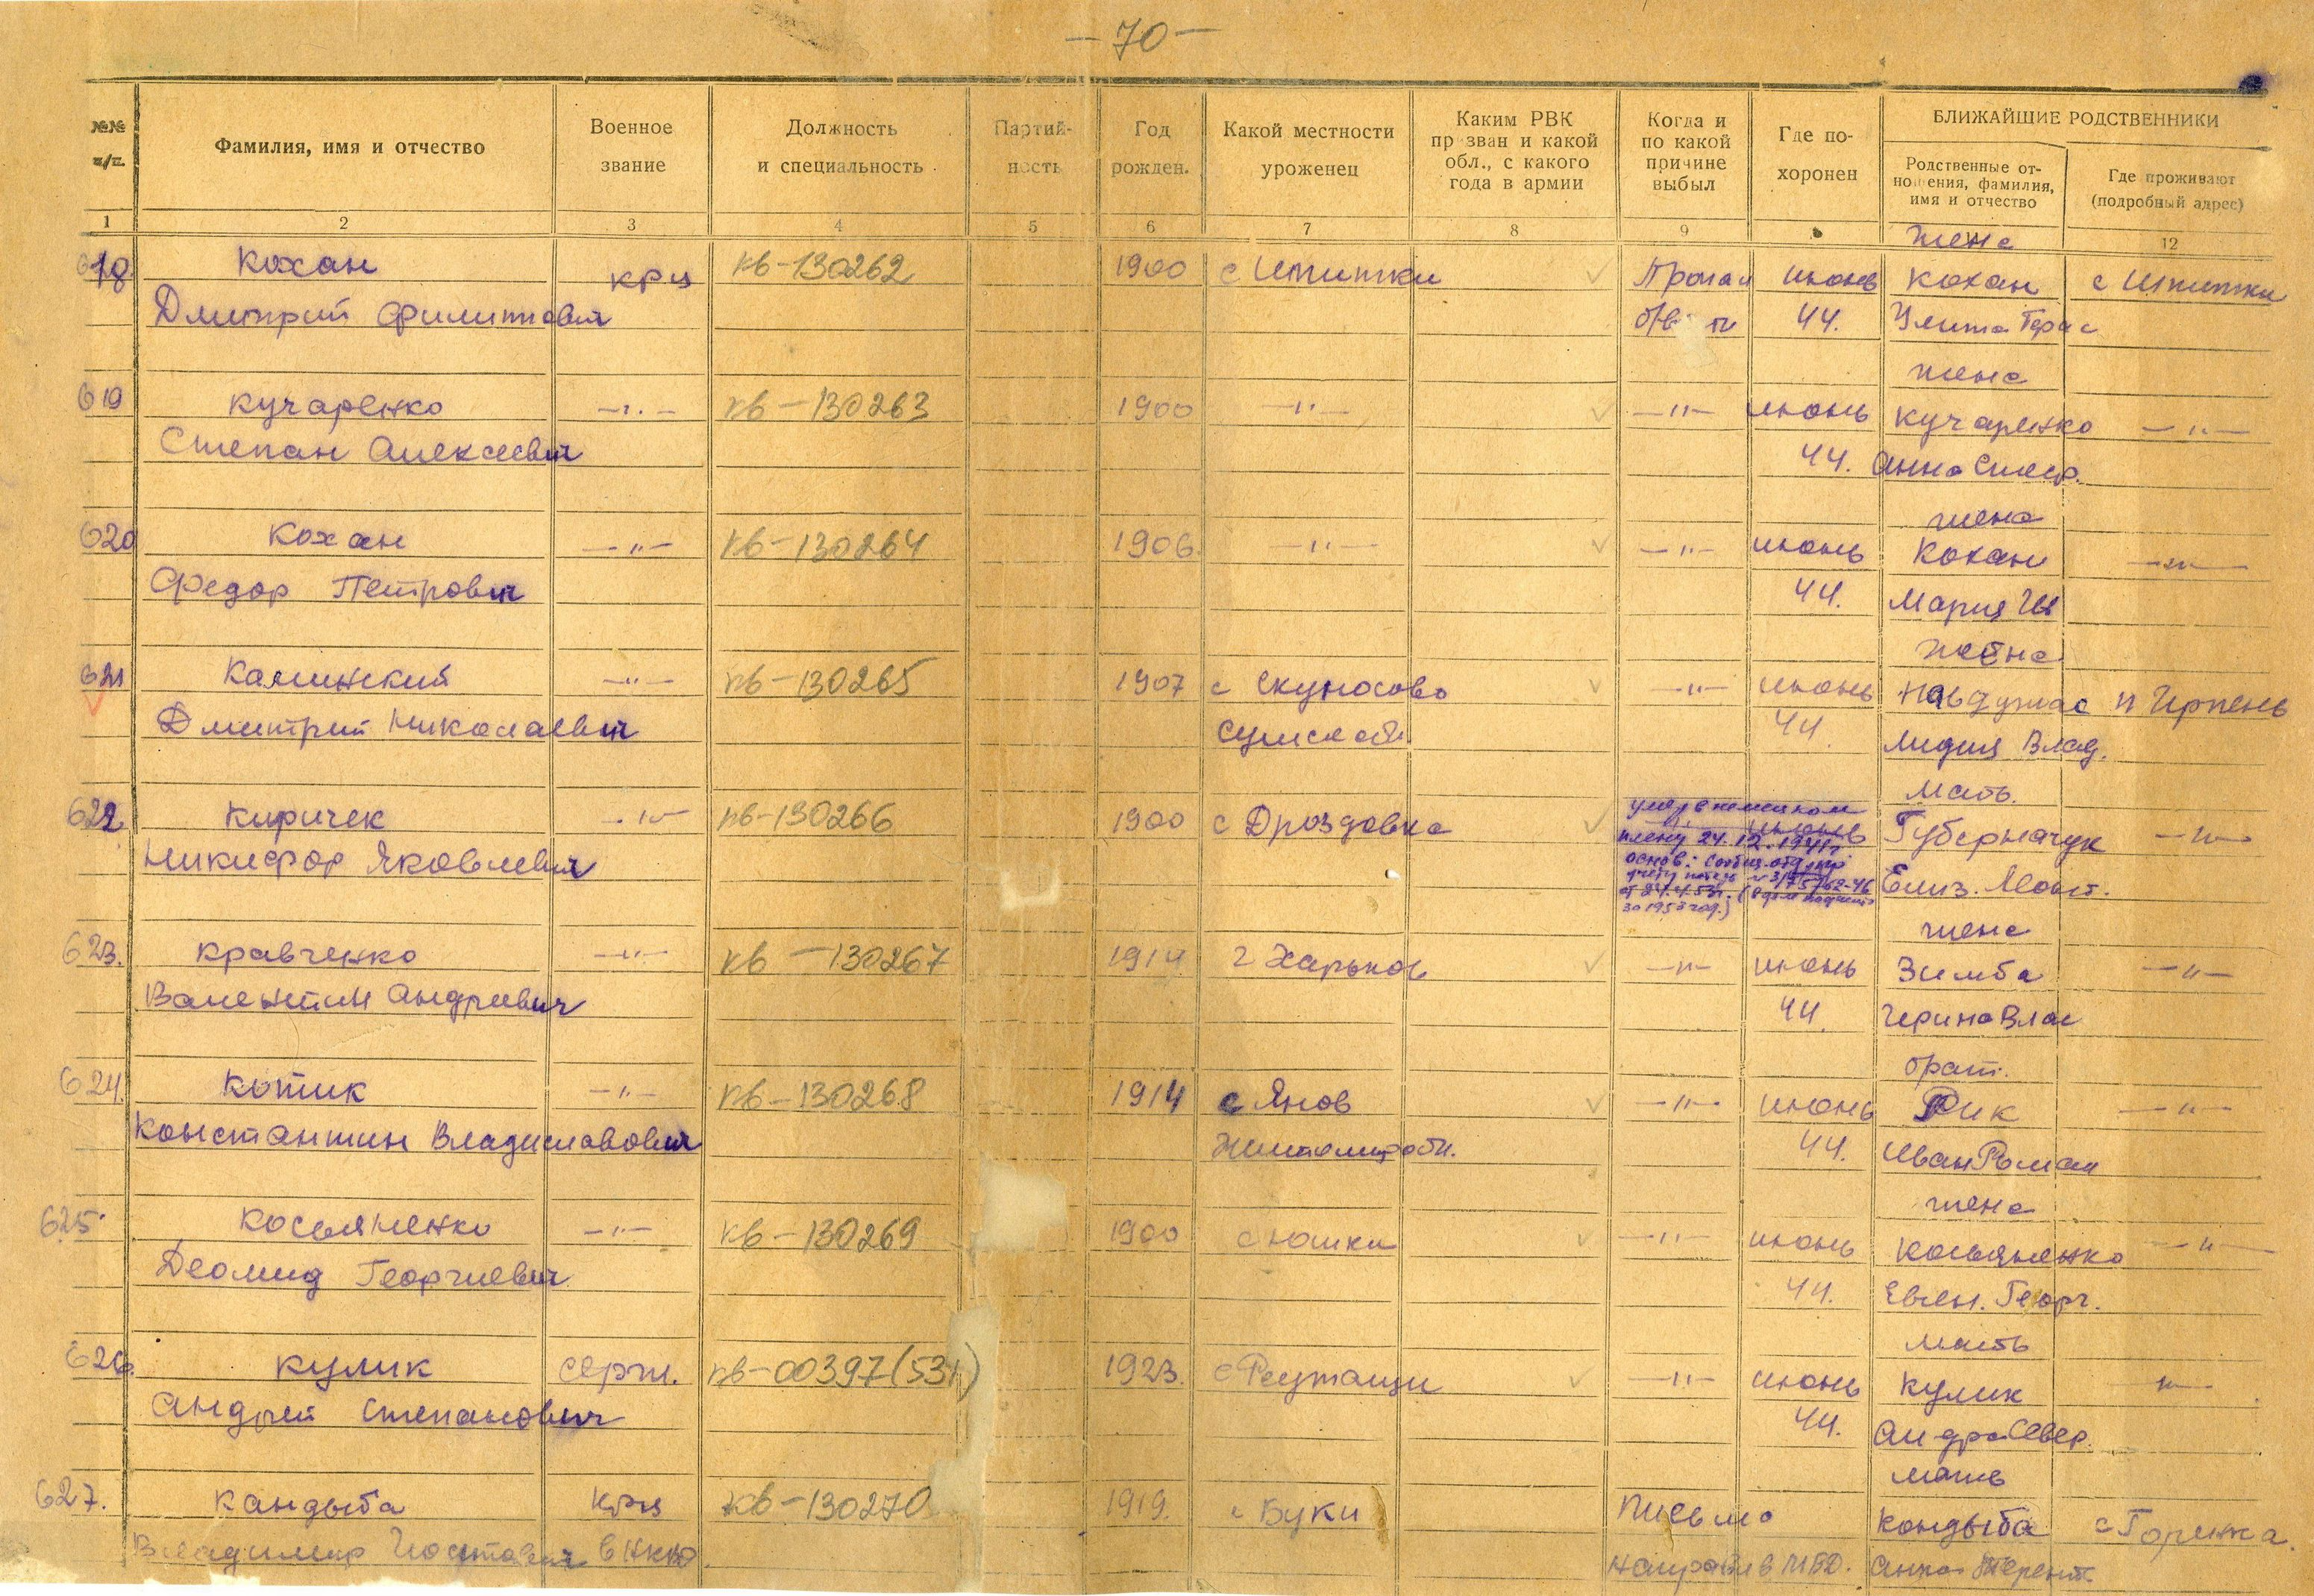 — 70 —
№№ п/п.
Фамилия, имя и отчество
Военное звание
Должность и специальность
Партийность
Год рожден.
Какой местности уроженец
Каким РВК призван и какой обл., с какого года в армии
Когда и по какой причине выбыл
Где похоронен
БЛИЖАЙШИЕ РОДСТВЕННИКИ
Родственные отношения, фамилия, имя и отчество
Где проживают (подробный адрес)
1 2 3 4 5 6 7 8 9 12
жена
618 Кохан крц кв-130262 1900 с Шпитки Пропал июнь Кохан с Шпитки
Дмитрий Филиппович б/в 44. Улита Герас
жена
619 Кучаренко —"— кв-130263 1900 —"— —"— июнь Кучаренко —"—
Степан Алексеевич 44. Анна
жена
620 Кохан —"— кв-130264 1906. —"— —"— июнь Кохан —"—
Федор Петрович 44. Мария
жена
621 Калинский —"— кв-130265 1907 с Скуносово —"— июнь п Ирпень
Дмитрий Николаевич Сумск обл. 44. Лидия Влад.
мать.
622 Киричек —"— кв-130266 1900 с Дроздовка умер в немецком июнь Губерначук —"—
Никифор Яковлевич плену 24.12.1941г Елиз.
основ: сообщ. отд. по
учету потерь № 3/75762-46
от 24.4.53г.
за 1953 год.)
жена
623. Кравченко —"— кв-130267 1914 г Харьков —"— июнь Зимба —"—
Валентин Андреевич 44. Ирина Влас
брат.
624. Котик —"— кв-130268 1914 с Янов —"— июнь Рик —"—
Константин Владиславович Житомир обл. 44. Иван Роман
жена
625 Косьяненко —"— кв-130269 1900 с Юшки —"— июнь Косьяненко —"—
Деомид Георгиевич 44. Евген. Георг.
мать
626. Кулик серж. кв-00397(53г.) 1923. с —"— июнь Кулик —"—
Андрей Степанович 44.
мать
627. Кандыба крц кв-130270 1919. с Буки Письмо Кандыба с Горенка.
Владимир в НКВД. направл в МВД. Анна Терент.